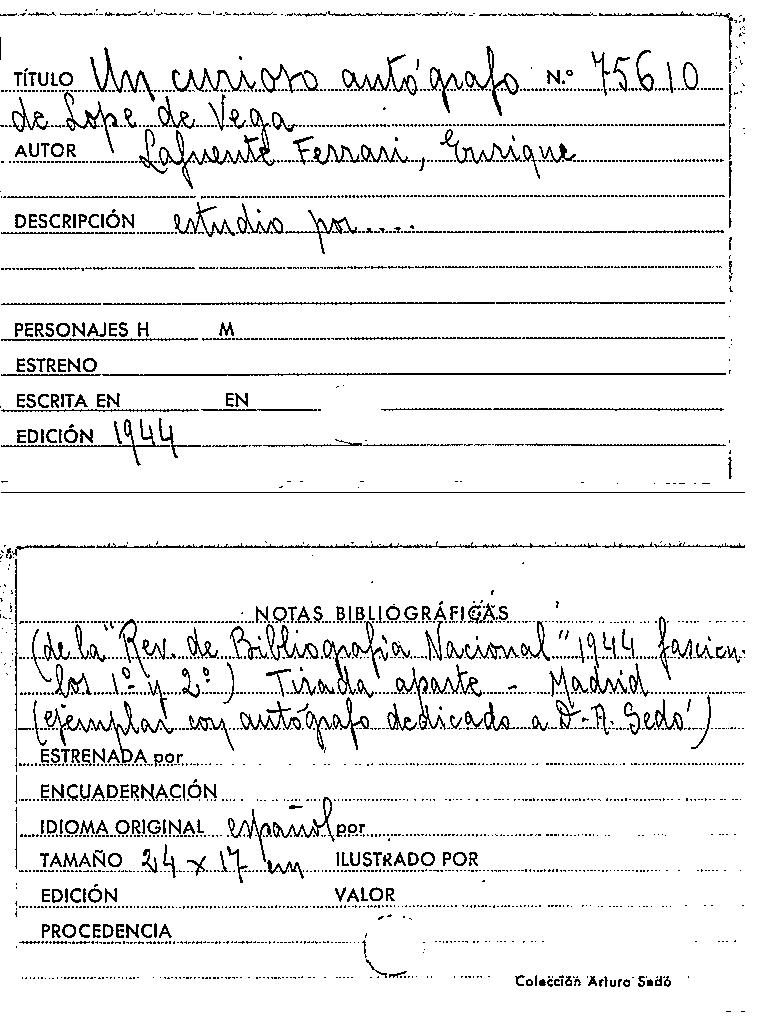 TÍTULO Un curioso autógrafo N.º 75610
de Lope de Vega
AUTOR Lafuente Ferrari, Enrique
DESCRIPCIÓN estudio por....
PERSONAJES H M
ESTRENO
ESCRITA EN EN
EDICIÓN 1944
NOTAS BIBLIOGRÁFICAS
(de la "Rev. de Bibliografia Nacional" 1944 fascicu-
los 1º y 2º) Tirada aparte - Madrid
(ejemplar con autógrafo dedicado a D. A. Sedó)
ESTRENADA por
ENCUADERNACIÓN
IDIOMA ORIGINAL español por
TAMAÑO 24 x 17 cm ILUSTRADO POR
EDICIÓN VALOR
PROCEDENCIA
Colección Arturo Sedó